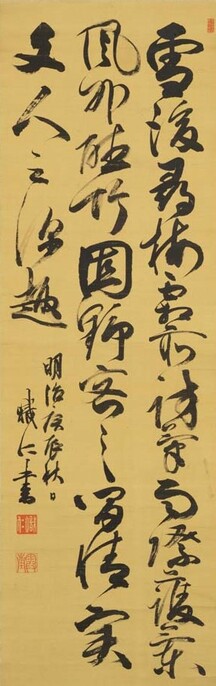 雪後尋梅霜前訪菊雨際護蘭
風外聴竹固野客之間情実
文人之深趣
明治庚辰秋日
熾仁書